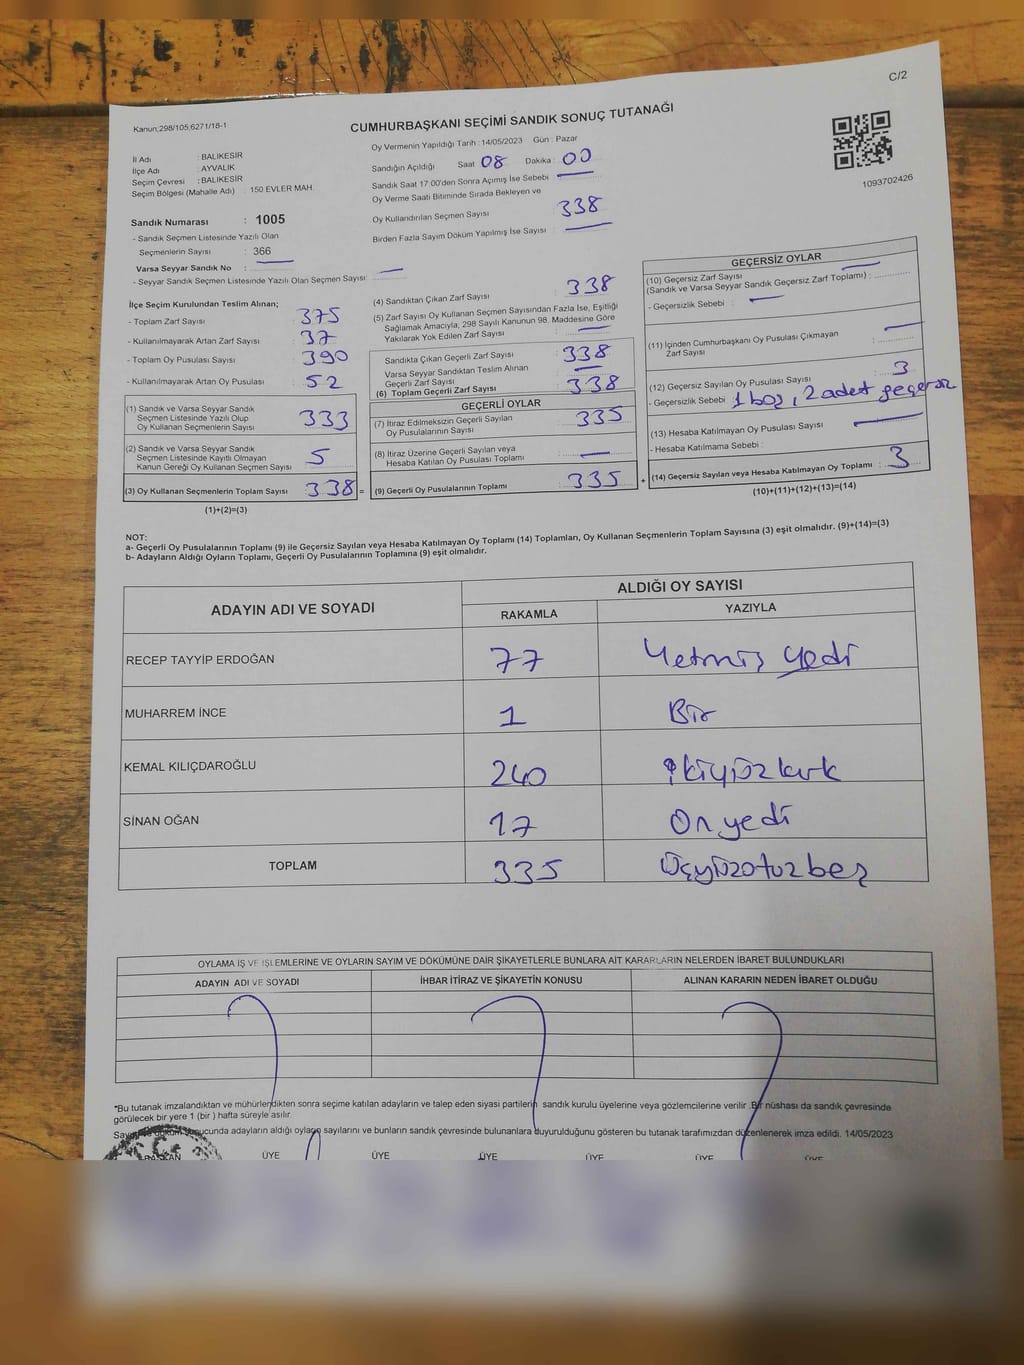 C/2
Kanun;298/105;6271/18-1
CUMHURBAŞKANI SEÇİMİ SANDIK SONUÇ TUTANAĞI
İl Adı : BALIKESİR
İlçe Adı : AYVALIK
Seçim Çevresi : BALIKESİR
Seçim Bölgesi (Mahalle Adı) : 150 EVLER MAH.
Sandık Numarası : 1005
- Sandık Seçmen Listesinde Yazılı Olan
Seçmenlerin Sayısı : 366
Varsa Seyyar Sandık No :
- Seyyar Sandık Seçmen Listesinde Yazılı Olan Seçmen Sayısı:
Oy Vermenin Yapıldığı Tarih : 14/05/2023 Gün : Pazar
Sandığın Açıldığı Saat 08 Dakika : 00
Sandık Saat 17 00'den Sonra Açımış İse Sebebi
Oy Verme Saati Bitiminde Sırada Bekleyen ve
Oy Kullandırılan Seçmen Sayısı 338
Birden Fazla Sayım Döküm Yapılmış İse Sayısı
1093702426
İlçe Seçim Kurulundan Teslim Alınan;
- Toplam Zarf Sayısı 375
- Kullanılmayarak Artan Zarf Sayısı 37
- Toplam Oy Pusulası Sayısı 390
- Kullanılmayarak Artan Oy Pusulası 52
(1) Sandık ve Varsa Seyyar Sandık
Seçmen Listesinde Yazılı Olup
Oy Kullanan Seçmenlerin Sayısı 333
(2) Sandık ve Varsa Seyyar Sandık
Seçmen Listesinde Kayıtlı Olmayan
Kanun Gereği Oy Kullanan Seçmen Sayısı 5
(3) Oy Kullanan Seçmenlerin Toplam Sayısı 338 =
(1)+(2)=(3)
(4) Sandıktan Çıkan Zarf Sayısı 338
(5) Zarf Sayısı Oy Kullanan Seçmen Sayısından Fazla İse, Eşitliği
Sağlamak Amacıyla, 298 Sayılı Kanunun 98. Maddesine Göre
Yakılarak Yok Edilen Zarf Sayısı
Sandıkta Çıkan Geçerli Zarf Sayısı 338
Varsa Seyyar Sandıktan Teslim Alınan
Geçerli Zarf Sayısı
(6) Toplam Geçerli Zarf Sayısı 338
GEÇERLİ OYLAR
(7) İtiraz Edilmeksizin Geçerli Sayılan
Oy Pusulalarının Sayısı 335
(8) İtiraz Üzerine Geçerli Sayılan veya
Hesaba Katılan Oy Pusulası Toplamı
(9) Geçerli Oy Pusulalarının Toplamı 335 +
GEÇERSİZ OYLAR
(10) Geçersiz Zarf Sayısı
(Sandık ve Varsa Seyyar Sandık Geçersiz Zarf Toplamı) :
- Geçersizlik Sebebi :
(11) İçinden Cumhurbaşkanı Oy Pusulası Çıkmayan
Zarf Sayısı :
(12) Geçersiz Sayılan Oy Pusulası Sayısı : 3
- Geçersizlik Sebebi : 1 boş, 2 adet geçersiz
(13) Hesaba Katılmayan Oy Pusulası Sayısı
- Hesaba Katılmama Sebebi :
(14) Geçersiz Sayılan veya Hesaba Katılmayan Oy Toplamı : 3
(10)+(11)+(12)+(13)=(14)
NOT:
a- Geçerli Oy Pusulalarının Toplamı (9) ile Geçersiz Sayılan veya Hesaba Katılmayan Oy Toplamı (14) Toplamları, Oy Kullanan Seçmenlerin Toplam Sayısına (3) eşit olmalıdır. (9)+(14)=(3)
b- Adayların Aldığı Oyların Toplamı, Geçerli Oy Pusulalarının Toplamına (9) eşit olmalıdır.
ADAYIN ADI VE SOYADI
ALDIĞI OY SAYISI
RAKAMLA YAZIYLA
RECEP TAYYİP ERDOĞAN 77 Yetmiş yedi
MUHARREM İNCE 1 Bir
KEMAL KILIÇDAROĞLU 240 İkiyüzkırk
SİNAN OĞAN 17 Onyedi
TOPLAM 335 Üçyüzotuzbeş
OYLAMA İŞ VE İŞLEMLERİNE VE OYLARIN SAYIM VE DÖKÜMÜNE DAİR ŞİKAYETLERLE BUNLARA AİT KARARLARIN NELERDEN İBARET BULUNDUKLARI
ADAYIN ADI VE SOYADI İHBAR İTİRAZ VE ŞİKAYETİN KONUSU ALINAN KARARIN NEDEN İBARET OLDUĞU
*Bu tutanak imzalandıktan ve mühürlendikten sonra seçime katılan adayların ve talep eden siyasi partilerin sandık kurulu üyelerine veya gözlemcilerine verilir. Bir nüshası da sandık çevresinde
görülecek bir yere 1 (bir ) hafta süreyle asılır.
sonucunda adayların aldığı oyların sayılarını ve bunların sandık çevresinde bulunanlara duyurulduğunu gösteren bu tutanak tarafımızdan düzenlenerek imza edildi. 14/05/2023
BAŞKAN ÜYE ÜYE ÜYE ÜYE ÜYE ÜYE